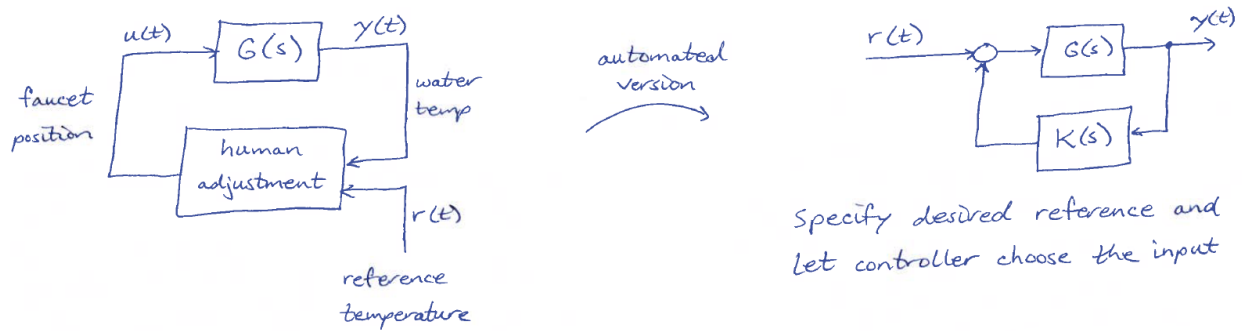 u(t)
G(s)
y(t)
faucet
position
water
temp
human
adjustment
r(t)
reference
temperature
automated
version
r(t)
G(s)
y(t)
K(s)
Specify desired reference and
Let controller choose the input